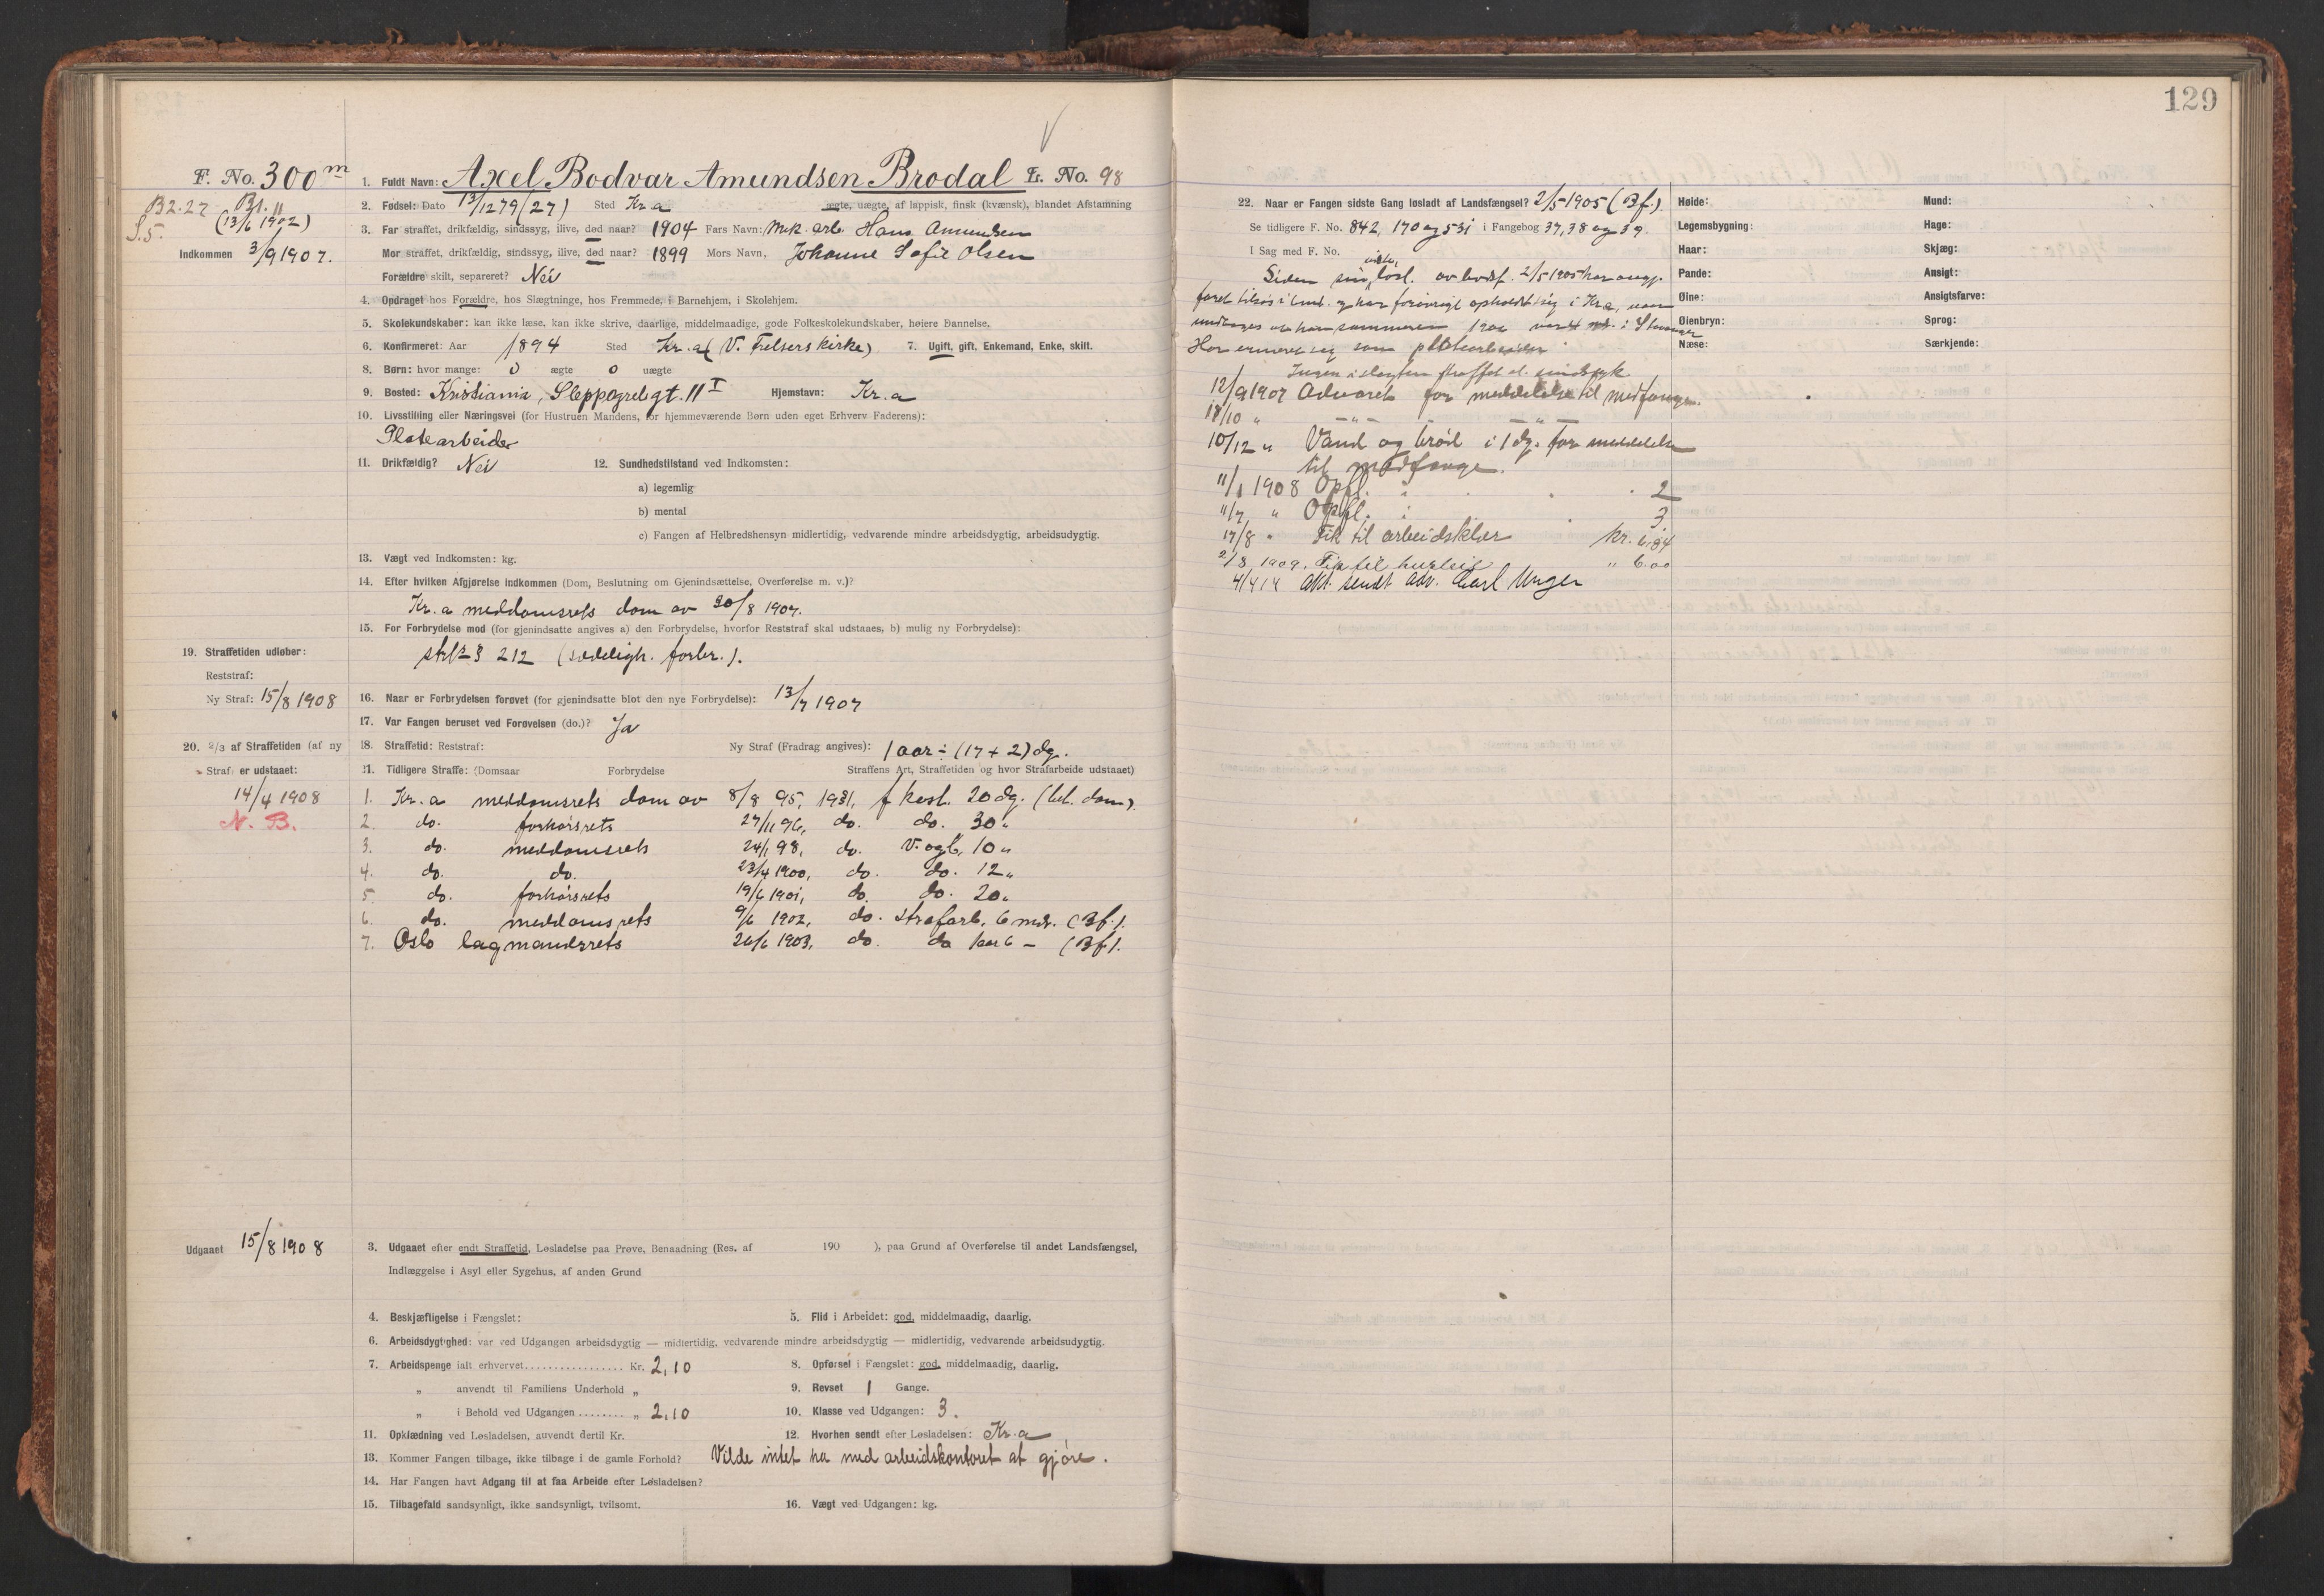 129
F. No. 300 m
B2.27 Bl. 11
S.5. (13/6 1902)
Indkommen 3/9 1907.
1. Fuldt Navn: Axel Bodvar Amundsen Brodal Lr. No. 98
2. Fødsel: Dato 13/12 79 (27) Sted Kr.a ægte, uægte, af lappisk, finsk (kvænsk), blandet Afstamning
3. Far straffet, drikfældig, sindssyg, ilive, død naar? 1904 Fars Navn: Mek. arb. Hans Amundsen
Mor straffet, drikfældig, sindssyg, ilive, død naar? 1899 Mors Navn, Johanne Sofie Olsen
Forældre skilt, separeret? Nei
4. Opdraget hos Forældre, hos Slægtninge, hos Fremmede, i Barnehjem, i Skolehjem.
5. Skolekundskaber: kan ikke læse, kan ikke skrive, daarlige, middelmaadige, gode Folkeskolekundskaber, høiere Dannelse.
6. Konfirmeret: Aar 1894 Sted Kr.a (V. Frelsers kirke) 7. Ugift, gift, Enkemand, Enke, skilt.
8. Børn: hvor mange: 0 ægte 0 uægte
9. Bosted: Kristiania, Sleppegrelgt. 11 I Hjemstavn: Kr.a
10. Livsstilling eller Næringsvei (for Hustruen Mandens, for hjemmeværende Børn uden eget Erhverv Faderens):
Platearbeider
11. Drikfældig? Nei 12. Sundhedstilstand ved Indkomsten:
a) legemlig
b) mental
c) Fangen af Helbredshensyn midlertidig, vedvarende mindre arbeidsdygtig, arbeidsudygtig.
13. Vægt ved Indkomsten: kg.
14. Efter hvilken Afgjørelse indkommen (Dom, Beslutning om Gjenindsættelse, Overførelse m. v.)?
Kr.a meddomsrets dom av 30/8 1907.
15. For Forbrydelse mod (for gjenindsatte angives a) den Forbrydelse, hvorfor Reststraf skal udstaaes, b) mulig ny Forbrydelse):
§ 212 (sædeligh. forbr.).
19. Straffetiden udløber:
Reststraf:
Ny Straf: 15/8 1908
16. Naar er Forbrydelsen forøvet (for gjenindsatte blot den nye Forbrydelse): 13/7 1907
17. Var Fangen beruset ved Forøvelsen (do.)? Ja
20. 2/3 af Straffetiden (af ny
Straf) er udstaaet:
14/4 1908
N. B.
18. Straffetid: Reststraf: Ny Straf (Fradrag angives): 1 aar ÷ (17 + 2) dg.
21. Tidligere Straffe: (Domsaar Forbrydelse Straffens Art, Straffetiden og hvor Strafarbeide udstaaet)
1. Kr.a meddomsrets dom av 8/8 95, 20 dg. (bet. dom).
2. do. forhørsrets 27/11 96, do. do. 30 "
3. do. meddomsrets 24/1 98, do. V. og b. 10 "
4. do. do. 23/4 1900, do. do. 12 "
5. do. forhørsrets 19/6 1901, do. do. 20 "
6. do. meddomsrets 9/6 1902, do. strafarb. 6 mdr. (Bf.).
7. Oslo lagmandsrets 26/6 1903, do. do 1 aar 6 - (Bf.).
Udgaaet 15/8 1908
3. Udgaaet efter endt Straffetid, Løsladelse paa Prøve, Benaadning (Res. af 190 ), paa Grund af Overførelse til andet Landsfængsel,
Indlæggelse i Asyl eller Sygehus, af anden Grund
4. Beskjæftigelse i Fængslet: 5. Flid i Arbeidet: god, middelmaadig, daarlig.
6. Arbeidsdygtighed: var ved Udgangen arbeidsdygtig — midlertidig, vedvarende mindre arbeidsdygtig — midlertidig, vedvarende arbeidsudygtig.
7. Arbeidspenge ialt erhvervet................. Kr. 2,10 8. Opførsel i Fængslet: god, middelmaadig, daarlig.
" anvendt til Familiens Underhold " 9. Revset 1 Gange.
" i Behold ved Udgangen ........ " 2.10 10. Klasse ved Udgangen: 3.
11. Opklædning ved Løsladelsen, anvendt dertil Kr. 12. Hvorhen sendt efter Løsladelsen: Kr.a
13. Kommer Fangen tilbage, ikke tilbage i de gamle Forhold? Vilde intet ha med arbeidskontoret at gjøre.
14. Har Fangen havt Adgang til at faa Arbeide efter Løsladelsen?
15. Tilbagefald sandsynligt, ikke sandsynligt, tvilsomt. 16. Vægt ved Udgangen: kg.
22. Naar er Fangen sidste Gang løsladt af Landsfængsel? 2/5 1905 (Bf.).
Se tidligere F. No. 842, 170 og 531 i Fangebog 37, 38 og 39.
I Sag med F. No.
Siden sin sidste løsl. av 2/5 1905 har
faret tilsjøs og har forøvrigt opholdt sig i Kr.a, naar
undtages sommeren i Stavanger
Har ernæret sig som platearbeider
Ingen i slegten straffet el. sindssyk
12/9 1907 Advaret for meddelelse til medfange.
18/10 " — " — — " —
10/12 " Vand og brød i 1 dg. for meddelelse
til medfange.
11/1 1908 Opfl. i 2
11/7 " Opfl. i 3.
17/8 " Fik til arbeidsklær kr. 6,84
2/8 1909. Fik til husleie " 6.00
4/4 14 Akt. sendt adv. Carl Unger
Høide: Mund:
Legemsbygning: Hage:
Haar: Skjæg:
Pande: Ansigt:
Øine: Ansigtsfarve:
Øienbryn: Sprog:
Næse: Særkjende: